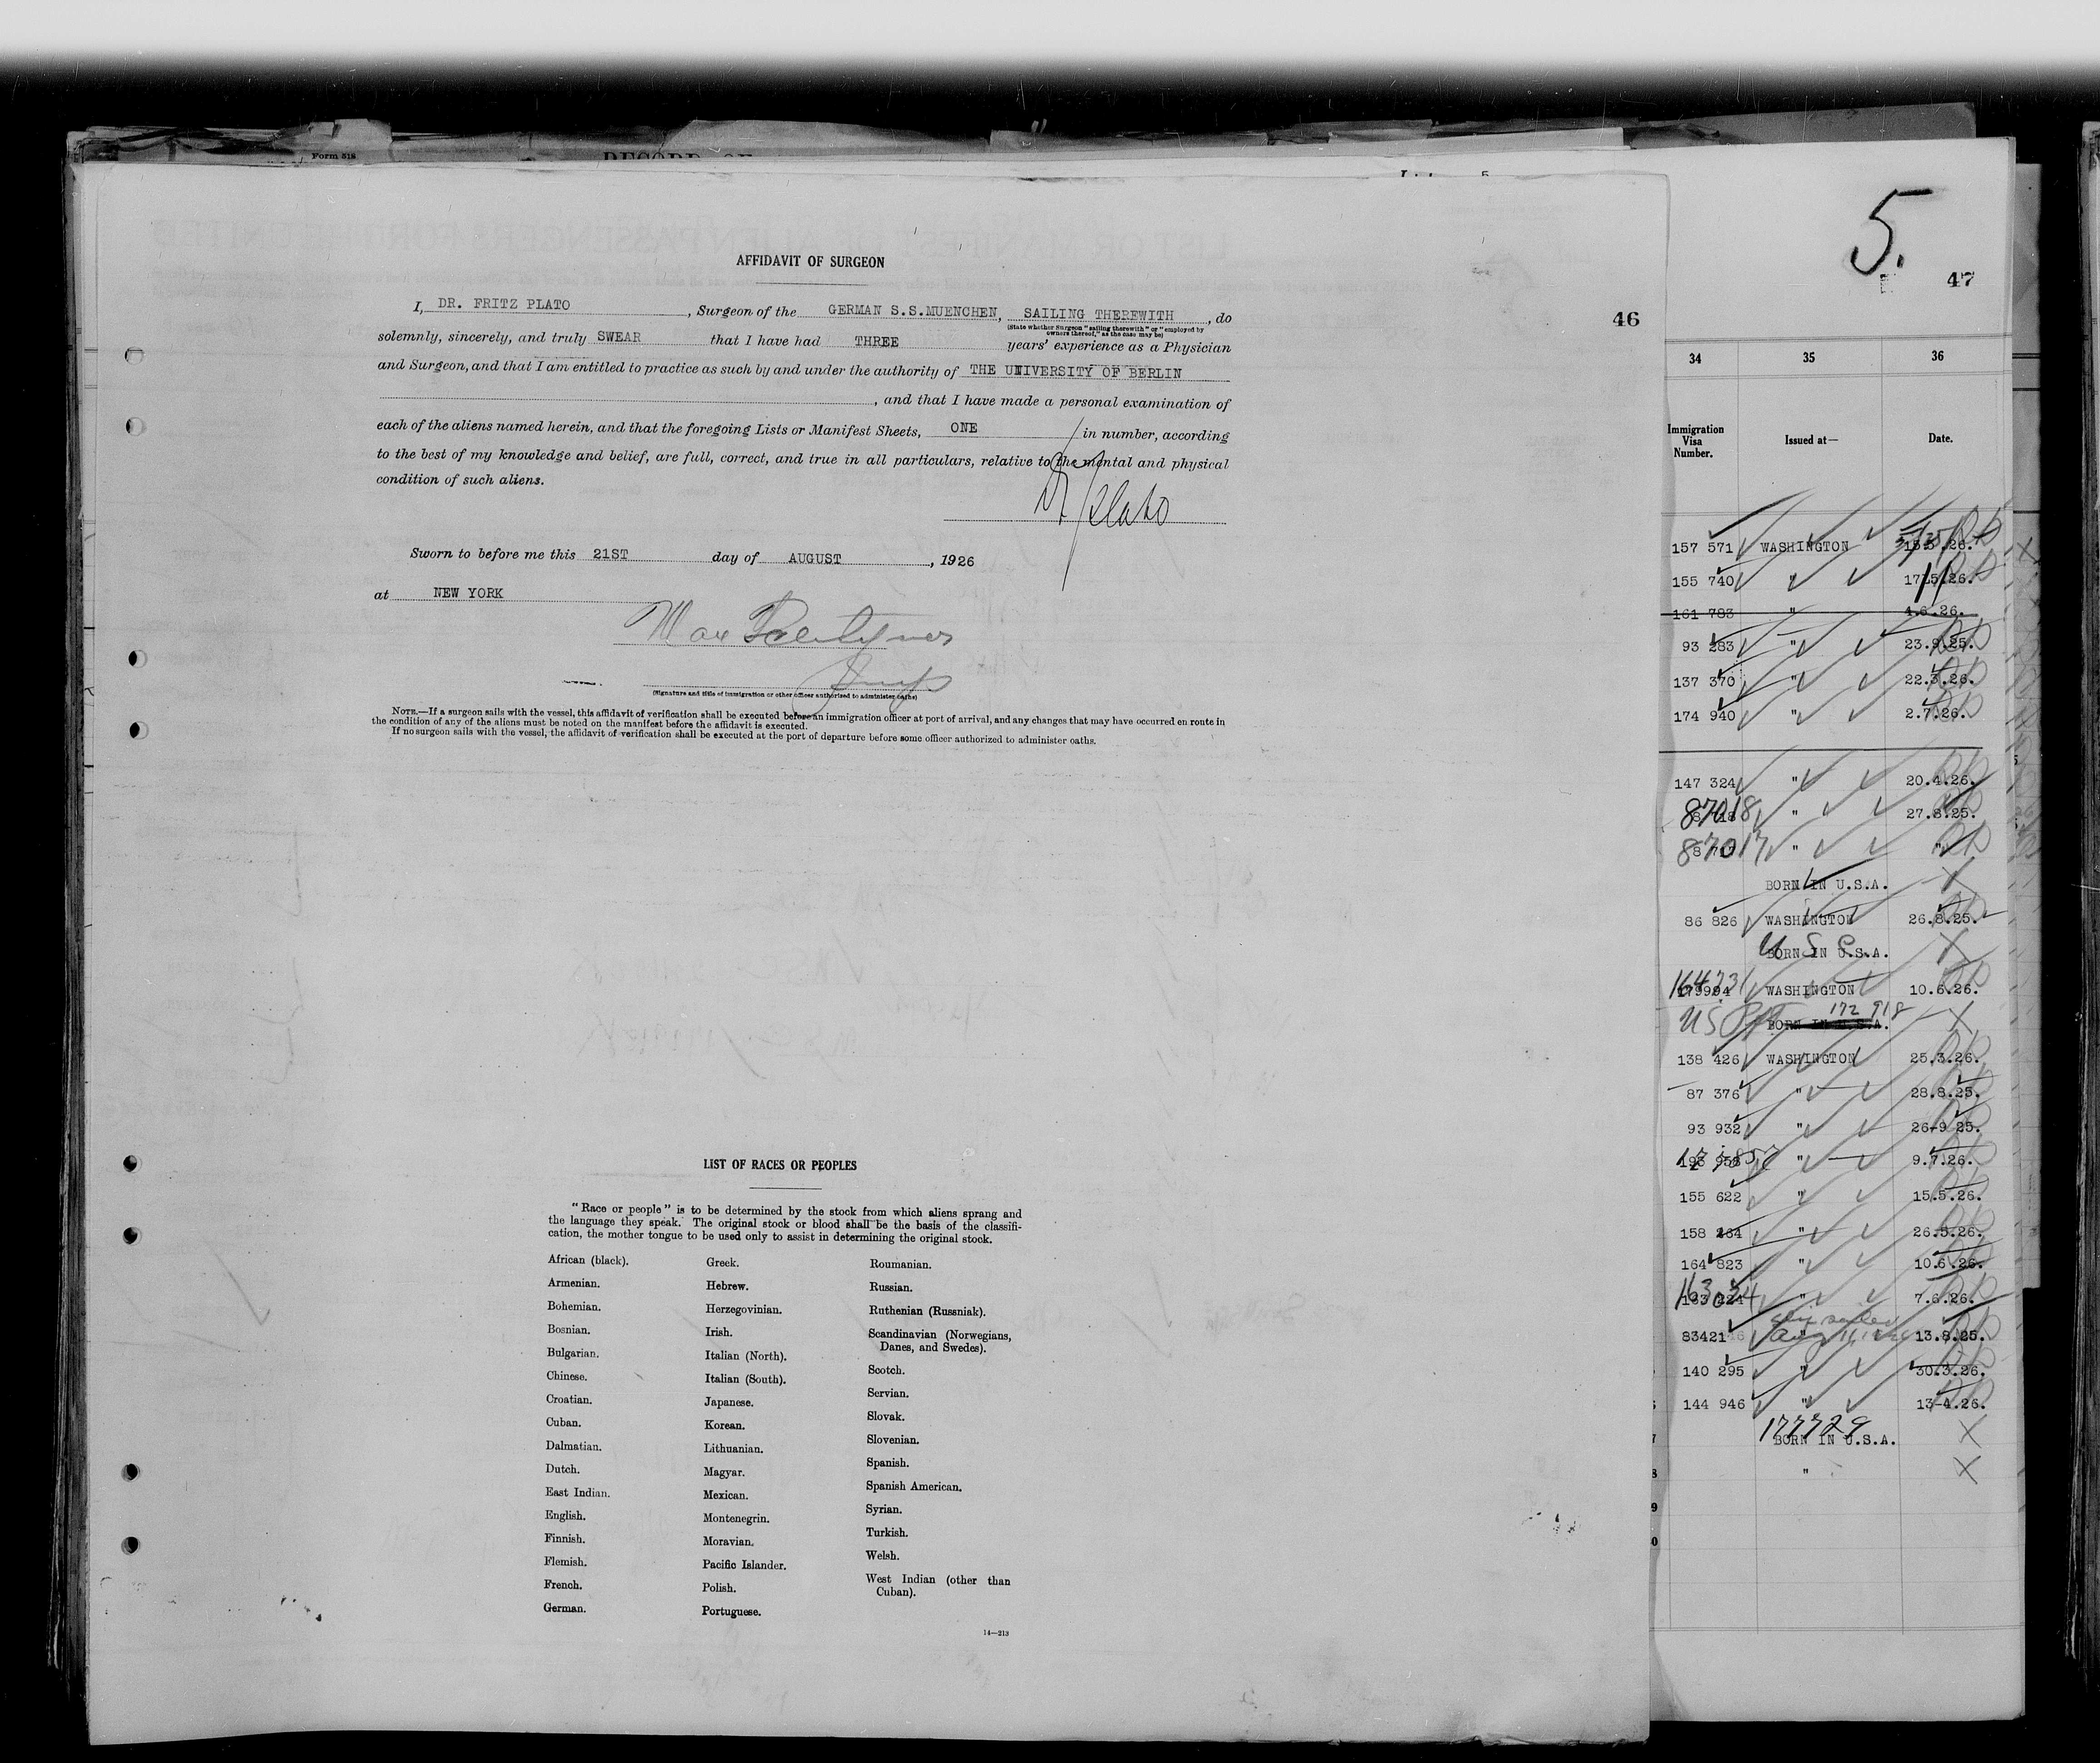 Form 518
RECORD OF
5
5.
47
46
AFFIDAVIT OF SURGEON
I, DR. FRITZ PLATO, Surgeon of the GERMAN S.S.MUENCHEN, SAILING THEREWITH, do
(State whether Surgeon "sailing therewith" or "employed by
owners thereof," as the case may be)
solemnly, sincerely, and truly SWEAR that I have had THREE years' experience as a Physician
and Surgeon, and that I am entitled to practice as such by and under the authority of THE UNIVERSITY OF BERLIN
, and that I have made a personal examination of
each of the aliens named herein, and that the foregoing Lists or Manifest Sheets, ONE in number, according
to the best of my knowledge and belief, are full, correct, and true in all particulars, relative to the mental and physical
condition of such aliens.
Dr Plato
Sworn to before me this 21ST day of AUGUST, 1926
at NEW YORK
Max
Insp
(Signature and title of immigration or other officer authorized to administer oaths)
NOTE.—If a surgeon sails with the vessel, this affidavit of verification shall be executed before an immigration officer at port of arrival, and any changes that may have occurred en route in
the condition of any of the aliens must be noted on the manifest before the affidavit is executed.
If no surgeon sails with the vessel, the affidavit of verification shall be executed at the port of departure before some officer authorized to administer oaths.
LIST OF RACES OR PEOPLES
"Race or people" is to be determined by the stock from which aliens sprang and
the language they speak. The original stock or blood shall be the basis of the classifi-
cation, the mother tongue to be used only to assist in determining the original stock.
African (black).
Armenian.
Bohemian.
Bosnian.
Bulgarian.
Chinese.
Croatian.
Cuban.
Dalmatian.
Dutch.
East Indian.
English.
Finnish.
Flemish.
French.
German.
Greek.
Hebrew.
Herzegovinian.
Irish.
Italian (North).
Italian (South).
Japanese.
Korean.
Lithuanian.
Magyar.
Mexican.
Montenegrin.
Moravian.
Pacific Islander.
Polish.
Portuguese.
Roumanian.
Russian.
Ruthenian (Russniak).
Scandinavian (Norwegians,
Danes, and Swedes).
Scotch.
Servian.
Slovak.
Slovenian.
Spanish.
Spanish American.
Syrian.
Turkish.
Welsh.
West Indian (other than
Cuban).
14—213
34 35 36
Immigration
Visa
Number.
Issued at—
Date.
157 571 WASHINGTON
155 740 " 17.5.26.
161 783 " 4.6.26.
93 283 " 23.9.25.
137 370 " 22.3.26.
174 940 " 2.7.26.
147 324 " 20.4.26.
87018 " 27.8.25.
87017 " "
BORN IN U.S.A.
86 826 WASHINGTON 26.8.25.
U S C.
BORN IN U.S.A.
WASHINGTON 10.6.26.
172 918
BORN IN U.S.A.
138 426 WASHINGTON 25.3.26.
87 376 " 28.8.25.
93 932 " 26-9 25.
" 9.7.26.
155 622 " 15.5.26.
158 264 " 26.5.26.
164 823 " 10.6.26.
" 7.6.26.
83421 " 13.8.25.
140 295 " 30.3.26.
144 946 " 13-4.26.
177729
BORN IN U.S.A.
"